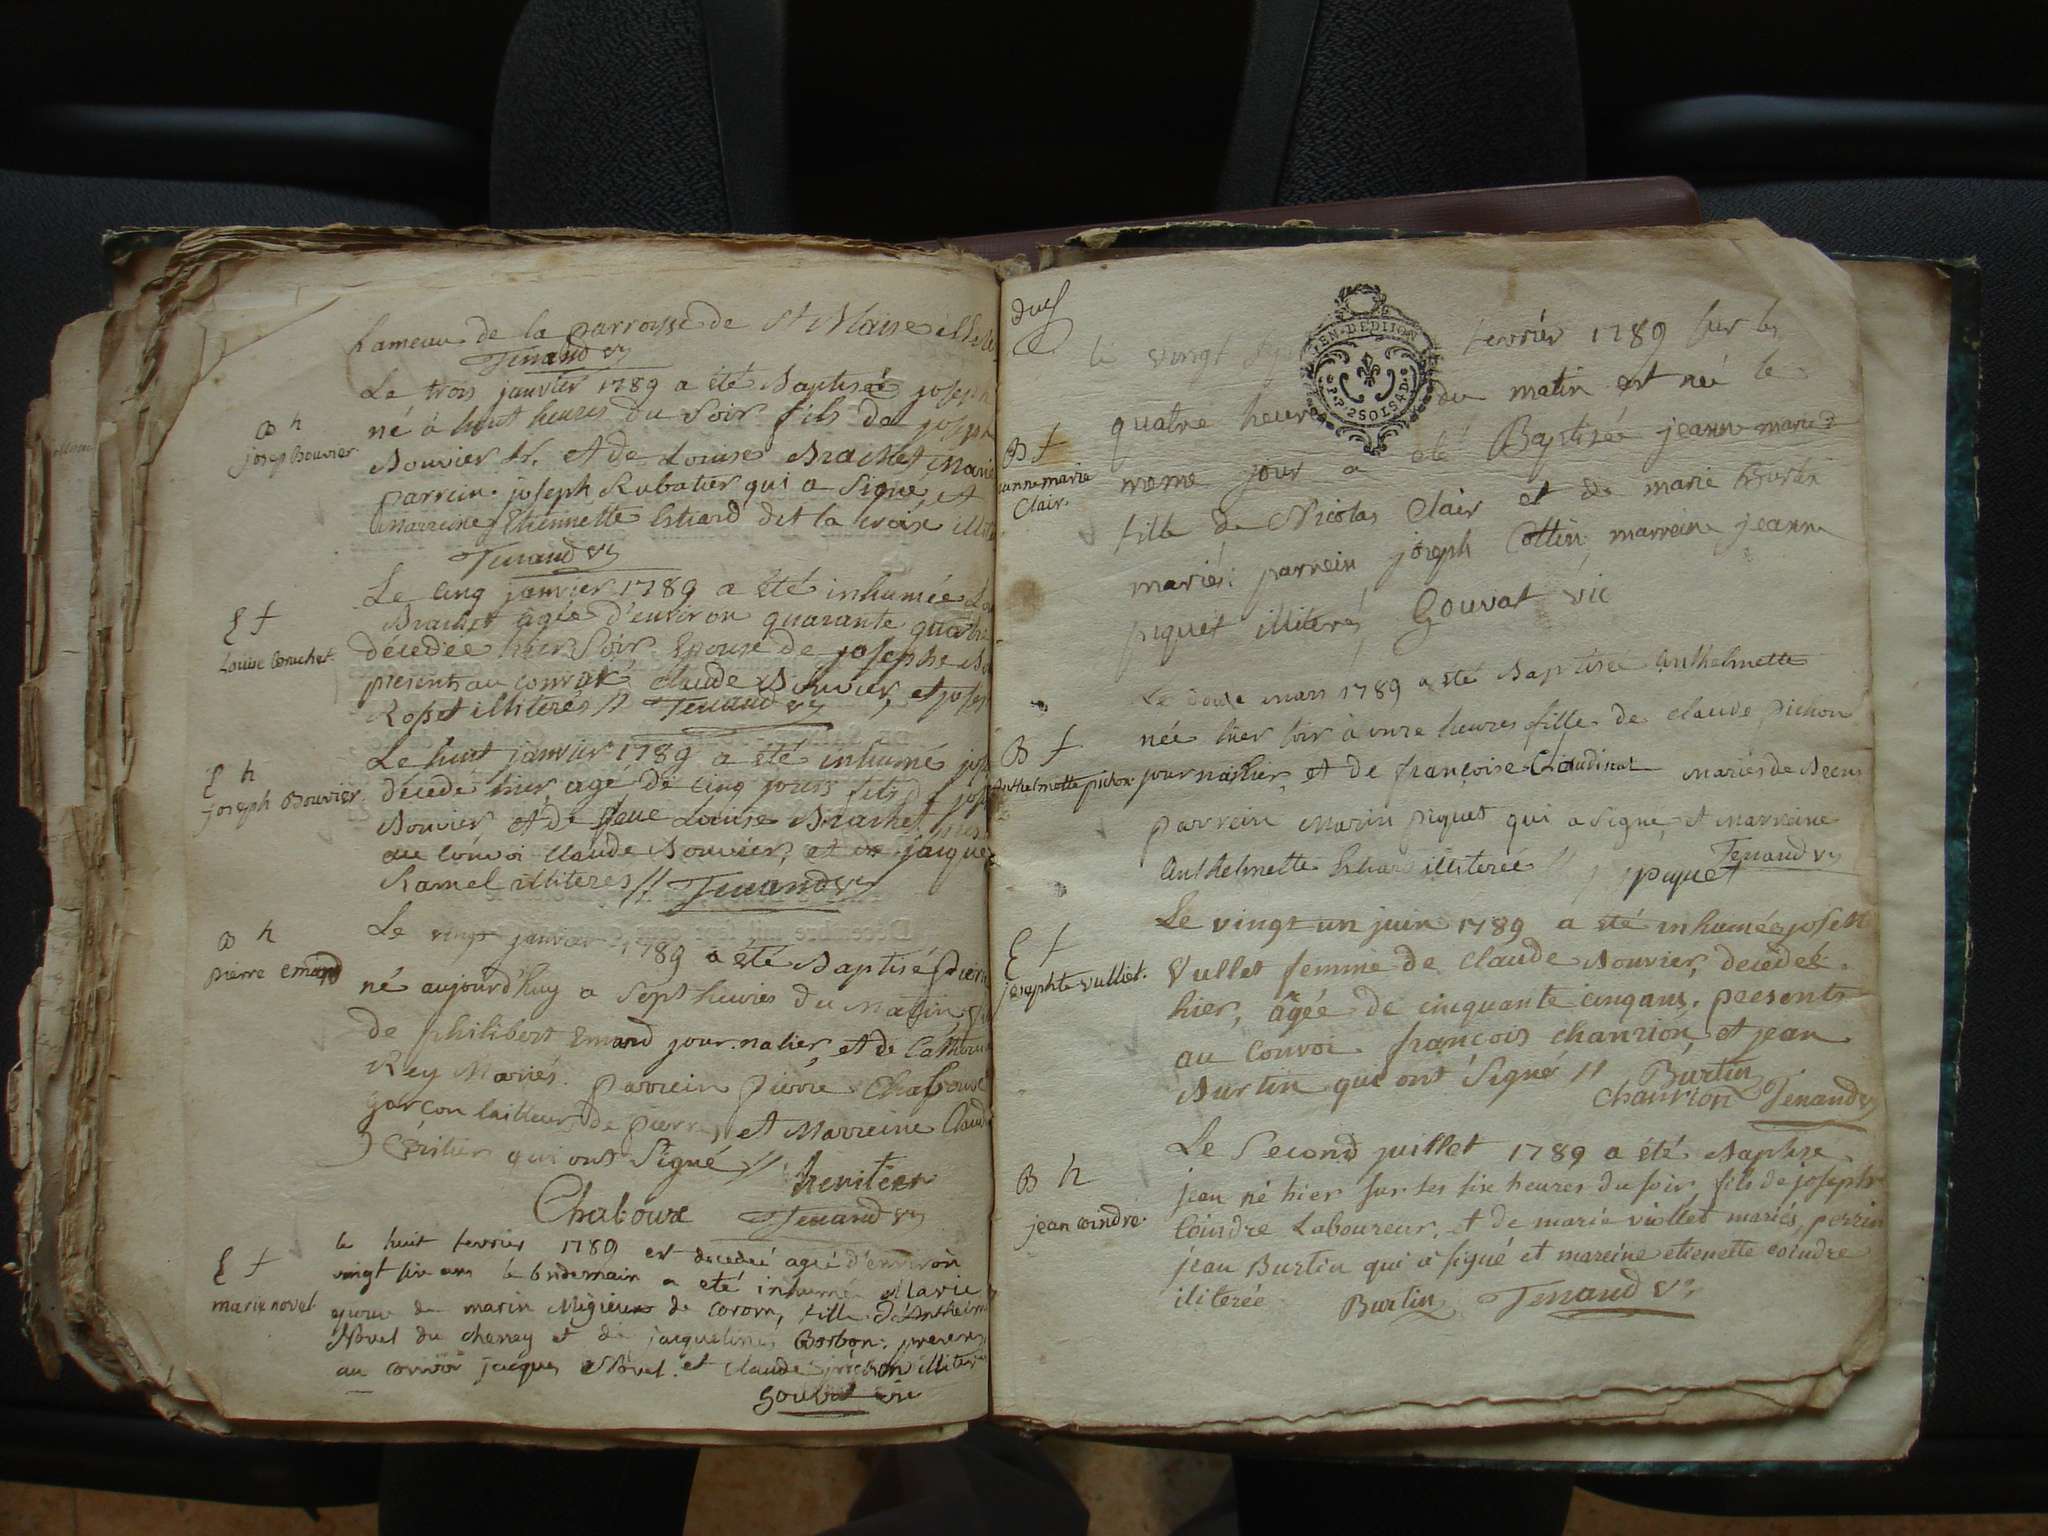 hameau de la parroisse de St Blaise
Tenand vy
Le trois janvier 1789 a été Baptisé joseph
né à huit heures du soir fils de joseph
Bouvier et de Louise Brachet Marié
parrein joseph Rubatier qui a signé, et
marreine Etiennette dit la croix
Tenand vy
B h
josep Bouvier
Le cinq janvier 1789 a été inhumée
Brachet agée d'environ quarante quatre
décedée hier soir Epouse de josephe
presents au convoi claude Bouvier, et josep
Roset illiterés // Tenand vy
E f
Louise Bruchet
Le huit janvier 1789 a été inhumé jose
décedé hier agé de cinq jours fils de jose
Bouvier, et de feue Louise Brachet
au convoi claude Bouvier, et jacque
Ramel illiteres // Tenand vy
E h
joseph Bouvier
Le vingt janvier 1789 a été Baptisé pierre
né aujourd'huy a sept heures du Matin
de philibert Emard journalier, et de
Rey Mariés. parrein pierre Chaboux
garçon tailleur de pierre, et Marreine Claud
qui ont signé // heritier
Chaboux Tenand vy
B h
pierre emard
le huit fevrier 1789 est decedeé ageé d'environ
vingt six ans le lendemain a eté inhumée Marie
epouse de marin de fille d'Anthelm
Novel du cheney et de jacqueline Borbon: presens
au convoi jacques Novel. et claude illiter
Gouvat vic
E f
marie novel
le vingt fevrier 1789 sur les
quatre heures du matin est née le
meme jour a eté Baptisée jeanne marie
fille de Nicolas Clair et de marie Burtin
mariés: parrein joseph Cottin marreine jeanne
piquet illiterés Gouvat vic
EN. DE DIJON
P. P. 2 SOLS 4 D.
B f
jannemarie
Clair.
Le douze mars 1789 a été Baptisée Anthelmette
née hier soir à onze heures fille de claude pichon
journalier, et de françoise Claudinat mariés de
parrein Marin piquet qui a signé, et Marreine
Anthelmette illiterée // piquet Tenand vy
B f
Anthelmette pichon
Le vingt un juin 1789 a été inhumée joseth
Vullet femme de claude Bouvier, decedeé
hier, âgée de cinquante cinq ans. presents
au convoi françois chanrion, et jean
Burtin qui ont signé // Burtin
Chanrion Tenand vy
E f
josephte vulliet.
Le second juillet 1789 a été Baptisé
jean né hier sur les six heures du soir fils de joseph
Coindre Laboureur, et de marie viollet mariés, perrin
jean Burtin qui a signé et mareine etienette coindre
iliterée Burtin Tenand vy
B h
jean coindre